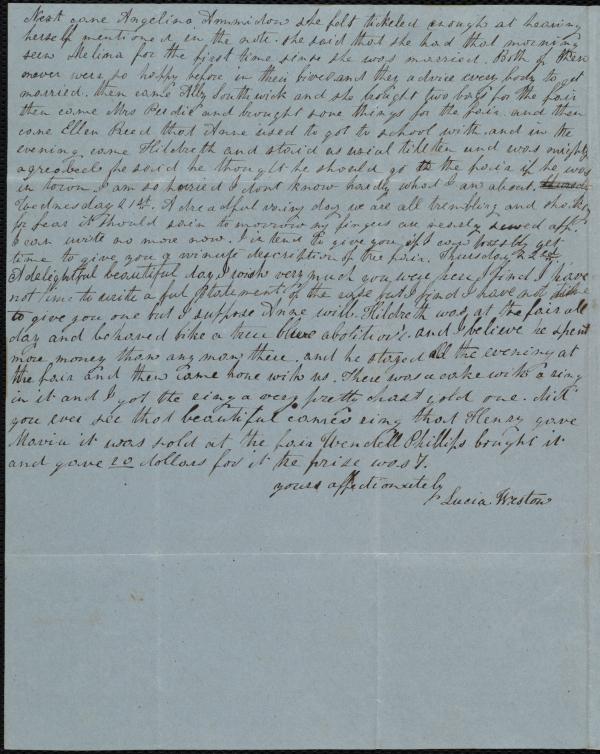 Next came Angelina Ammidon she felt tickeled enough at hearing
herself mentioned in the note. she said that she had that morning
seen Melina for the first time sense she was married. Both of them
never were so happy before in their lives and they advice every body to get
married. then came Ally Southwick and she brought two bags for the fair
then came Mrs Perdie and brought some things for the fair. and then
came Ellen Reed that Anne used to got to school with. and in the
evening came Hildreth and staid as usial till ten und was mighty
agreabele he said he thought he should go to the fair if he was
in town. I am so hurried I dont know hardy what I am about.
Wednesday 21st. A dreadful rainy day we are all trembling and shaking
for fear it should rain to morrow my fingers are nearly sewed off.
I can write no more now. I intend to give you if I can possibly get
time to give you a minute description of the fair. Thursday 22st.
A delightful beautiful day I wish very much you were here I find I have
not time to write a ful statement of the sale but I find I have not time
to give you one but I suppose Anne will. Hildreth was at the fair all
day and behaved like a true blue abolitionist. and I believe he spent
more money than any many there. and he stayed all the evening at
the fair and then came home with us. There was a cake with a ring
in it and I got the ring a very pretty chast gold one. did
you ever see that beautiful cameo ring that Henry gave
Maria it was sold at the fair Wendell Phillips bought it
and gave 20 dollars for it the prise was 7.
yours affectionately
Lucia Weston